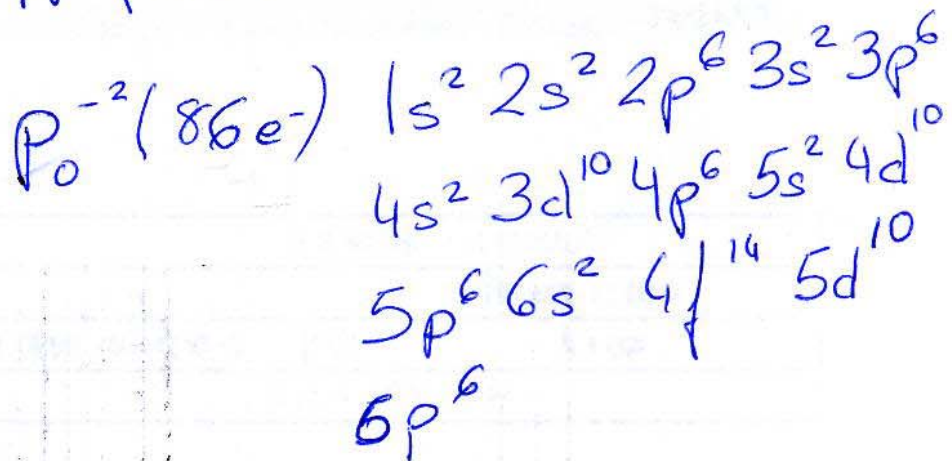 Po⁻² (86e⁻) 1s² 2s² 2p⁶ 3s² 3p⁶
4s² 3d¹⁰ 4p⁶ 5s² 4d¹⁰
5p⁶ 6s² 4f¹⁴ 5d¹⁰
6p⁶